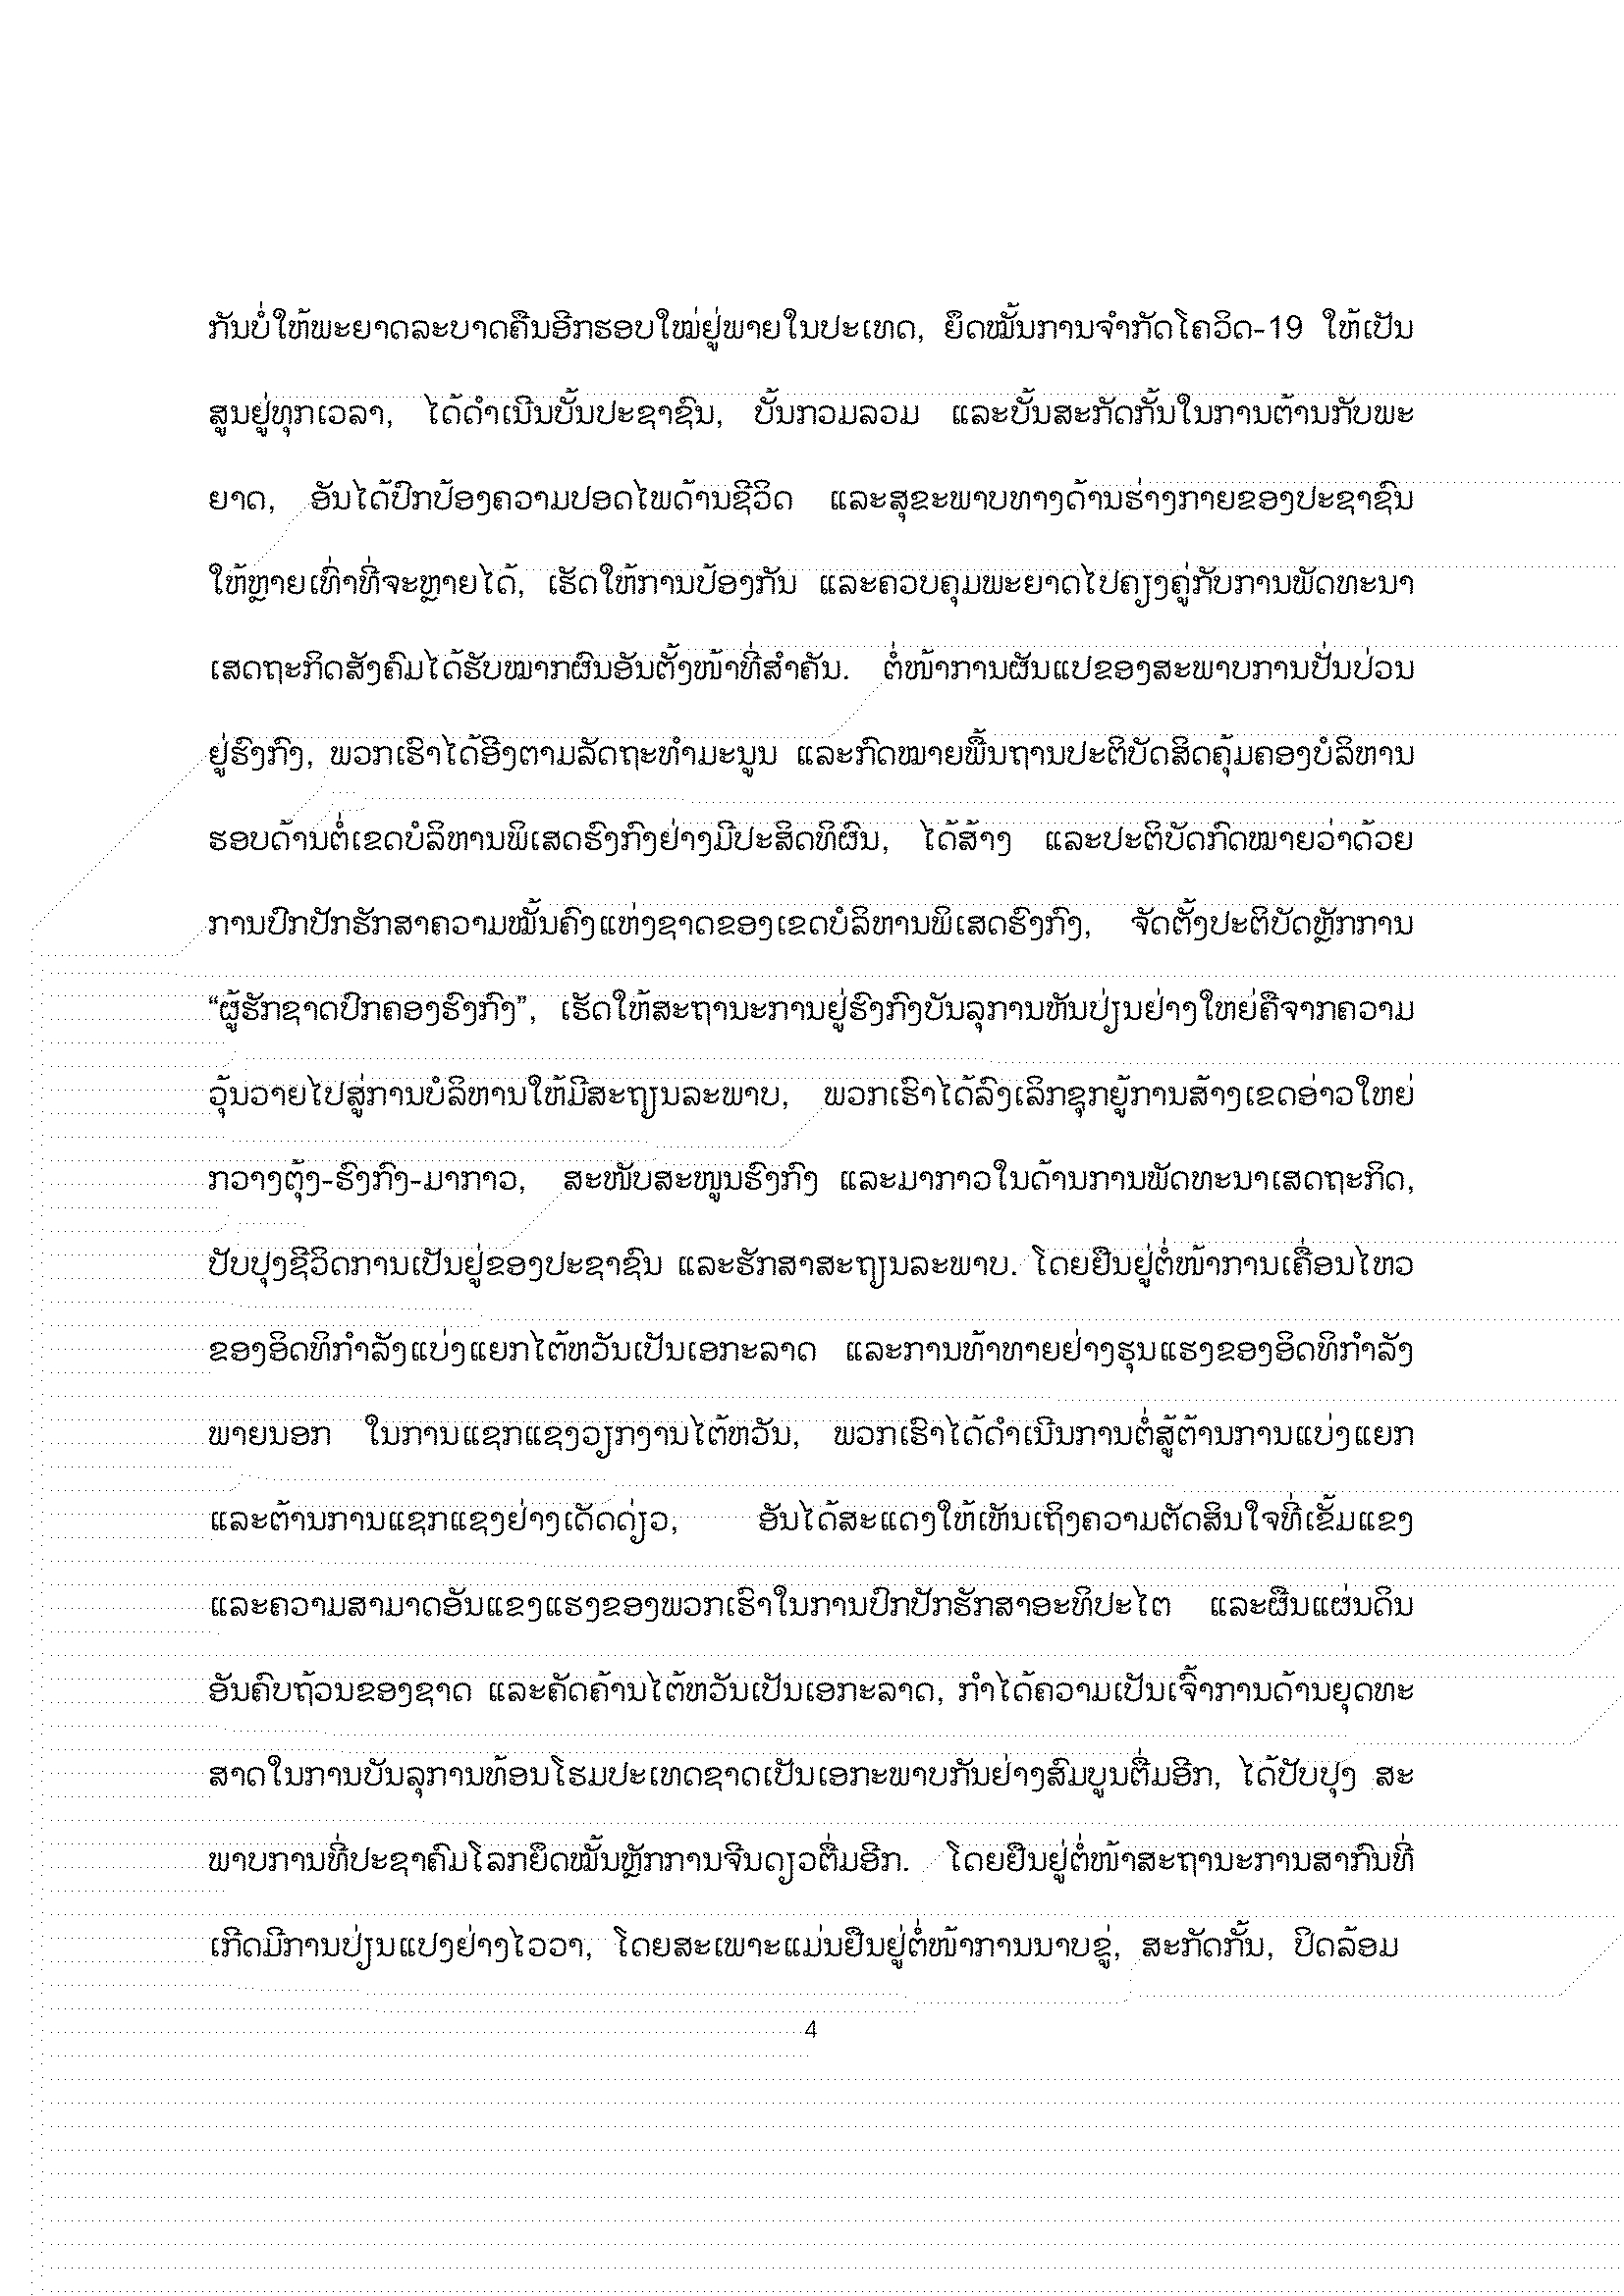 ກັນບໍ່ໃຫ້ພະຍາດລະບາດຄືນອີກຮອບໃໝ່ຢູ່ພາຍໃນປະເທດ, ຍຶດໝັ້ນການຈຳກັດໂຄວິດ-19 ໃຫ້ເປັນ
ສູນຢູ່ທຸກເວລາ, ໄດ້ດຳເນີນບັ້ນປະຊາຊົນ, ບັ້ນກວມລວມ ແລະບັ້ນສະກັດກັ້ນໃນການຕ້ານກັບພະ
ຍາດ, ອັນໄດ້ປົກປ້ອງຄວາມປອດໄພດ້ານຊີວິດ ແລະສຸຂະພາບທາງດ້ານຮ່າງກາຍຂອງປະຊາຊົນ
ໃຫ້ຫຼາຍເທົ່າທີ່ຈະຫຼາຍໄດ້, ເຮັດໃຫ້ການປ້ອງກັນ ແລະຄວບຄຸມພະຍາດໄປຄຽງຄູ່ກັບການພັດທະນາ
ເສດຖະກິດສັງຄົມໄດ້ຮັບໝາກຜົນອັນຕັ້ງໜ້າທີ່ສຳຄັນ. ຕໍ່ໜ້າການຜັນແປຂອງສະພາບການປັ່ນປ່ວນ
ຢູ່ຮົງກົງ, ພວກເຮົາໄດ້ອີງຕາມລັດຖະທຳມະນູນ ແລະກົດໝາຍພື້ນຖານປະຕິບັດສິດຄຸ້ມຄອງບໍລິຫານ
ຮອບດ້ານຕໍ່ເຂດບໍລິຫານພິເສດຮົງກົງຢ່າງມີປະສິດທິຜົນ, ໄດ້ສ້າງ ແລະປະຕິບັດກົດໝາຍວ່າດ້ວຍ
ການປົກປັກຮັກສາຄວາມໝັ້ນຄົງແຫ່ງຊາດຂອງເຂດບໍລິຫານພິເສດຮົງກົງ, ຈັດຕັ້ງປະຕິບັດຫຼັກການ
“ຜູ້ຮັກຊາດປົກຄອງຮົງກົງ”, ເຮັດໃຫ້ສະຖານະການຢູ່ຮົງກົງບັນລຸການຫັນປ່ຽນຢ່າງໃຫຍ່ຄືຈາກຄວາມ
ວຸ້ນວາຍໄປສູ່ການບໍລິຫານໃຫ້ມີສະຖຽນລະພາບ, ພວກເຮົາໄດ້ລົງເລິກຊຸກຍູ້ການສ້າງເຂດອ່າວໃຫຍ່
ກວາງຕຸ້ງ-ຮົງກົງ-ມາກາວ, ສະໜັບສະໜູນຮົງກົງ ແລະມາກາວໃນດ້ານການພັດທະນາເສດຖະກິດ,
ປັບປຸງຊີວິດການເປັນຢູ່ຂອງປະຊາຊົນ ແລະຮັກສາສະຖຽນລະພາບ. ໂດຍຢືນຢູ່ຕໍ່ໜ້າການເຄື່ອນໄຫວ
ຂອງອິດທິກຳລັງແບ່ງແຍກໄຕ້ຫວັນເປັນເອກະລາດ ແລະການທ້າທາຍຢ່າງຮຸນແຮງຂອງອິດທິກຳລັງ
ພາຍນອກ ໃນການແຊກແຊງວຽກງານໄຕ້ຫວັນ, ພວກເຮົາໄດ້ດຳເນີນການຕໍ່ສູ້ຕ້ານການແບ່ງແຍກ
ແລະຕ້ານການແຊກແຊງຢ່າງເດັດດ່ຽວ, ອັນໄດ້ສະແດງໃຫ້ເຫັນເຖິງຄວາມຕັດສິນໃຈທີ່ເຂັ້ມແຂງ
ແລະຄວາມສາມາດອັນແຂງແຮງຂອງພວກເຮົາໃນການປົກປັກຮັກສາອະທິປະໄຕ ແລະຜືນແຜ່ນດິນ
ອັນຄົບຖ້ວນຂອງຊາດ ແລະຄັດຄ້ານໄຕ້ຫວັນເປັນເອກະລາດ, ກຳໄດ້ຄວາມເປັນເຈົ້າການດ້ານຍຸດທະ
ສາດໃນການບັນລຸການທ້ອນໂຮມປະເທດຊາດເປັນເອກະພາບກັນຢ່າງສົມບູນຕື່ມອີກ, ໄດ້ປັບປຸງ ສະ
ພາບການທີ່ປະຊາຄົມໂລກຍຶດໝັ້ນຫຼັກການຈີນດຽວຕື່ມອີກ. ໂດຍຢືນຢູ່ຕໍ່ໜ້າສະຖານະການສາກົນທີ່
ເກີດມີການປ່ຽນແປງຢ່າງໄວວາ, ໂດຍສະເພາະແມ່ນຢືນຢູ່ຕໍ່ໜ້າການນາບຂູ່, ສະກັດກັ້ນ, ປິດລ້ອມ
4